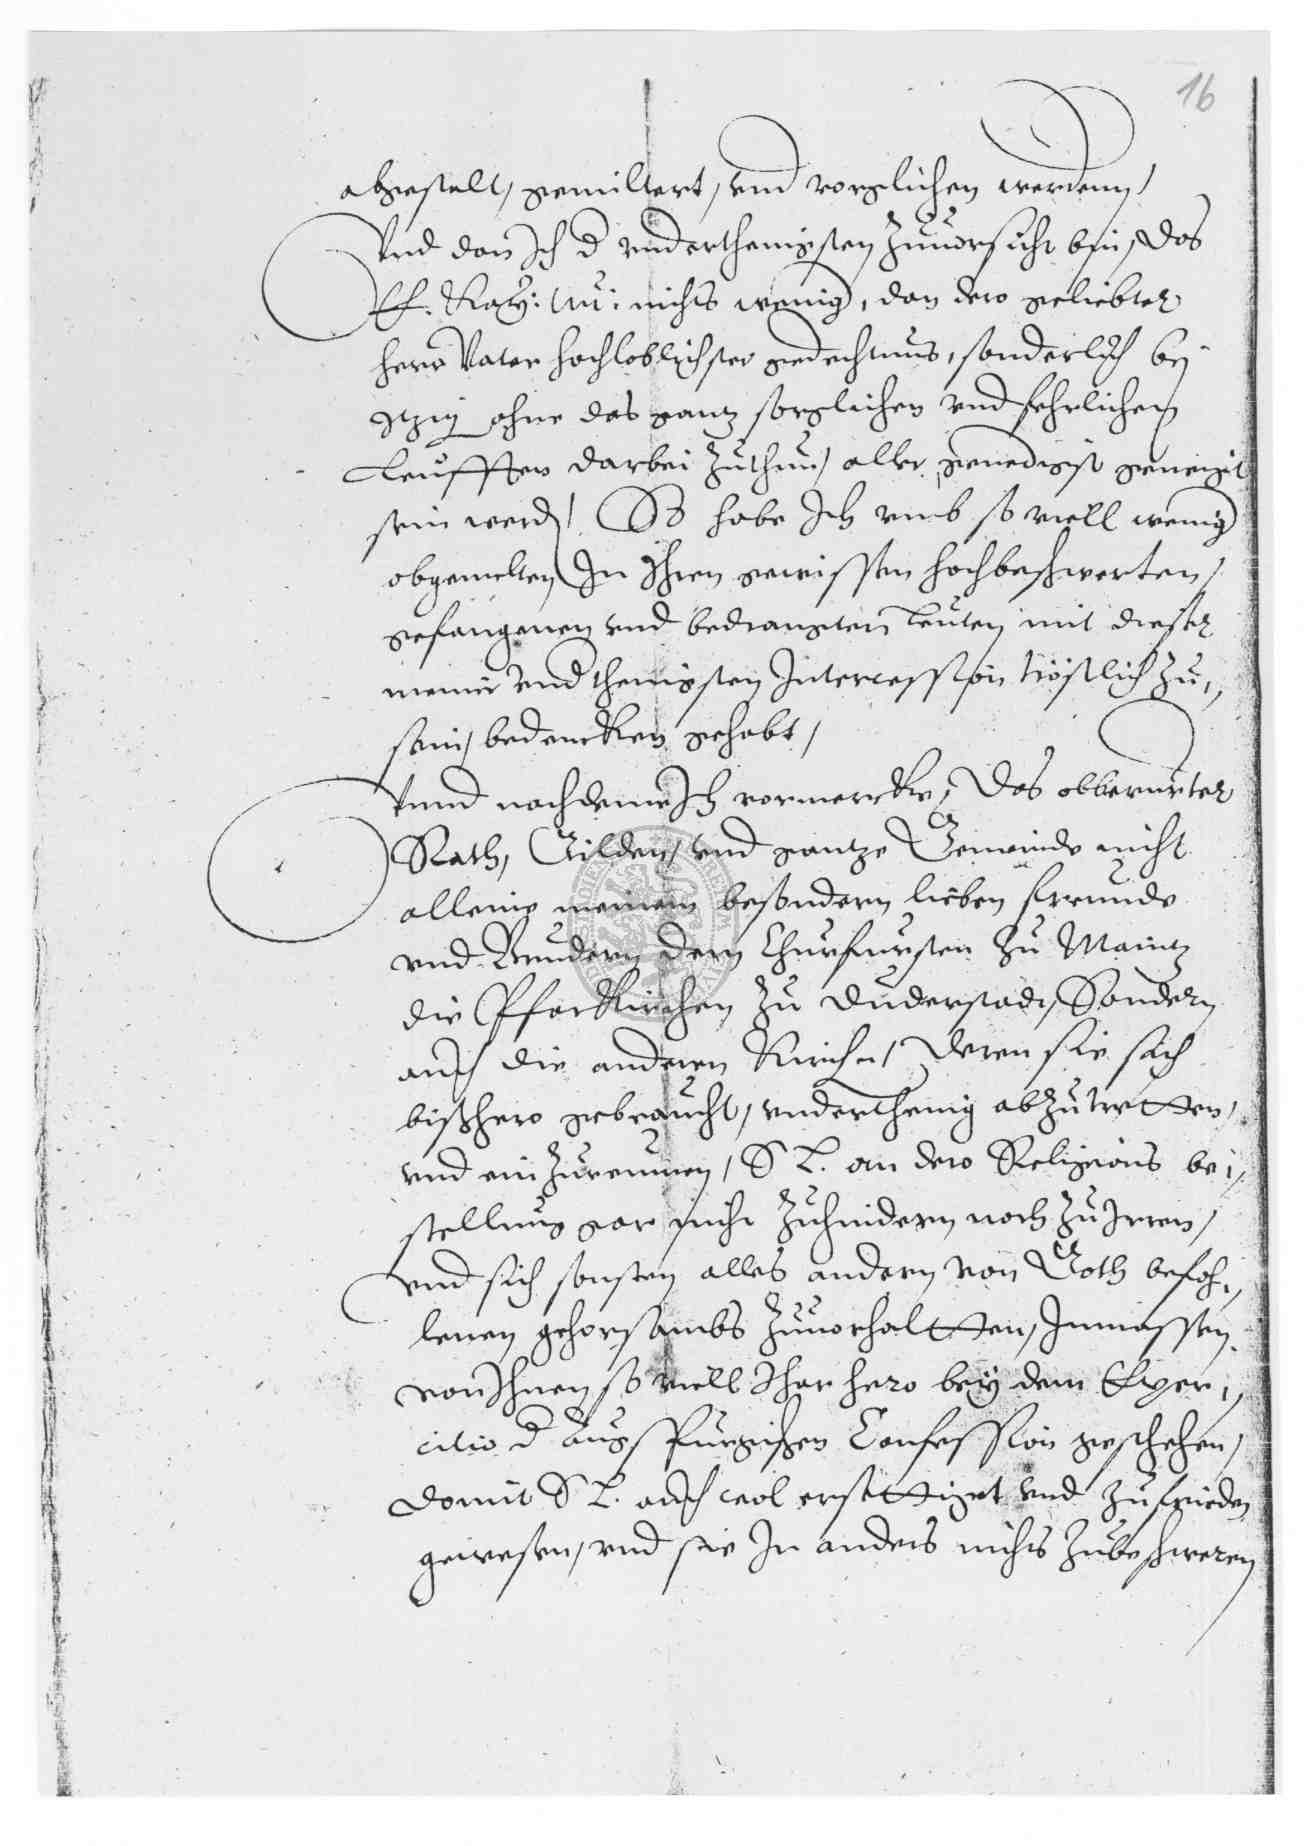 16
abgestelt, gemiltert, vnd vorglichen werdenn,
Vnd dan Ich d vnderthenigsten Zuuorsicht bin, Das
Ef. Kay: Mt: nichts wenig, dan dero geliebter
herr Vater hochloblichster gedechtnus, sonderlich bei
itzig ohne das gantz sorglichen vnd fehrlichen
Leufften darbei Zuthun, aller genedigst geneigt
sein werd, So habe Ich vmb so viell wenig
obgemelten In Ihren gewissen hochbeschwerten,
gefangenen vnd bedrangten Leuten mit dieser
meiner Vndthenigsten Intercession tröstlich Zu,,
sein, bedencken gehabt,
Vnnd nachdeme Ich vormercke, Das obberurter
Rath, Gilden, vnd gantze Gemeinde nicht
alleine meinem besondern lieben freunde
vnd Brudern dem Churfursten Zu Maintz
die Pfarkirchen Zu Duderstadt, Sondern
auch die anderen Kirchen, Deren sie sich
bißhero gebraucht, vnderthenig abZutretten,
vnd einZureumen, S L. an dero Religions be,,
stellung gar nicht Zuhindern noch Zu Irren,
vnd sich sonsten alles andern von Goth befoh,,
lenen gehorsambs Zuuorhaltten, Inmassen
von Ihnen so viell Ihar hero bey dem Exer,,
citio d Augspurgischen Confession geschehen,
Domit S L. auch wol ersettiget vnd Zufrieden
gewesen, vnd sie In anders nichts Zubeschweren